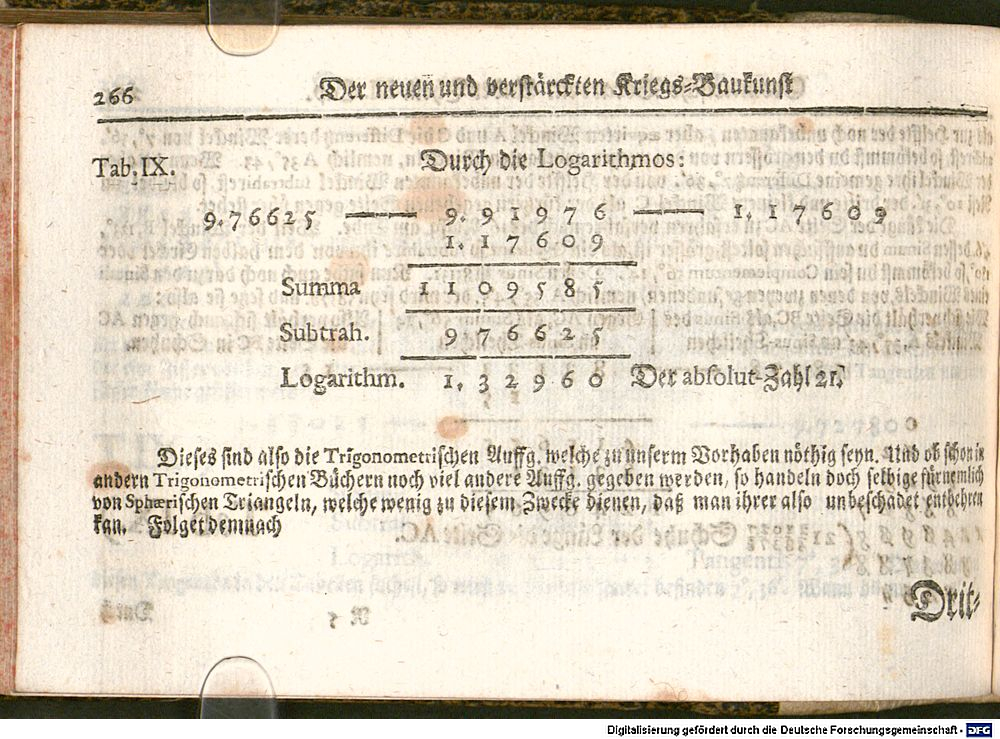 266 Der neuen und verstärckten Kriegs-Baukunst
Tab. IX. Durch die Logarithmos:
9.76625 —— 9.91976 —— 1.17609
1.17609
Summa 11 09585
Subtrah. 9 76625
Logarithm. 1. 32960 Der absolut-Zahl 21.
Dieses sind also die Trigonometrischen Auffg. welche zu unserm Vorhaben nöthig seyn. Und ob schon in
andern Trigonometrischen Büchern noch viel andere Auffg. gegeben werden, so handeln doch selbige fürnemlich
von Sphærischen Triangeln, welche wenig zu diesem Zwecke dienen, daß man ihrer also unbeschadet entbehren
kan. Folget demnach
Drit-
Digitalisierung gefördert durch die Deutsche Forschungsgemeinschaft - DFG